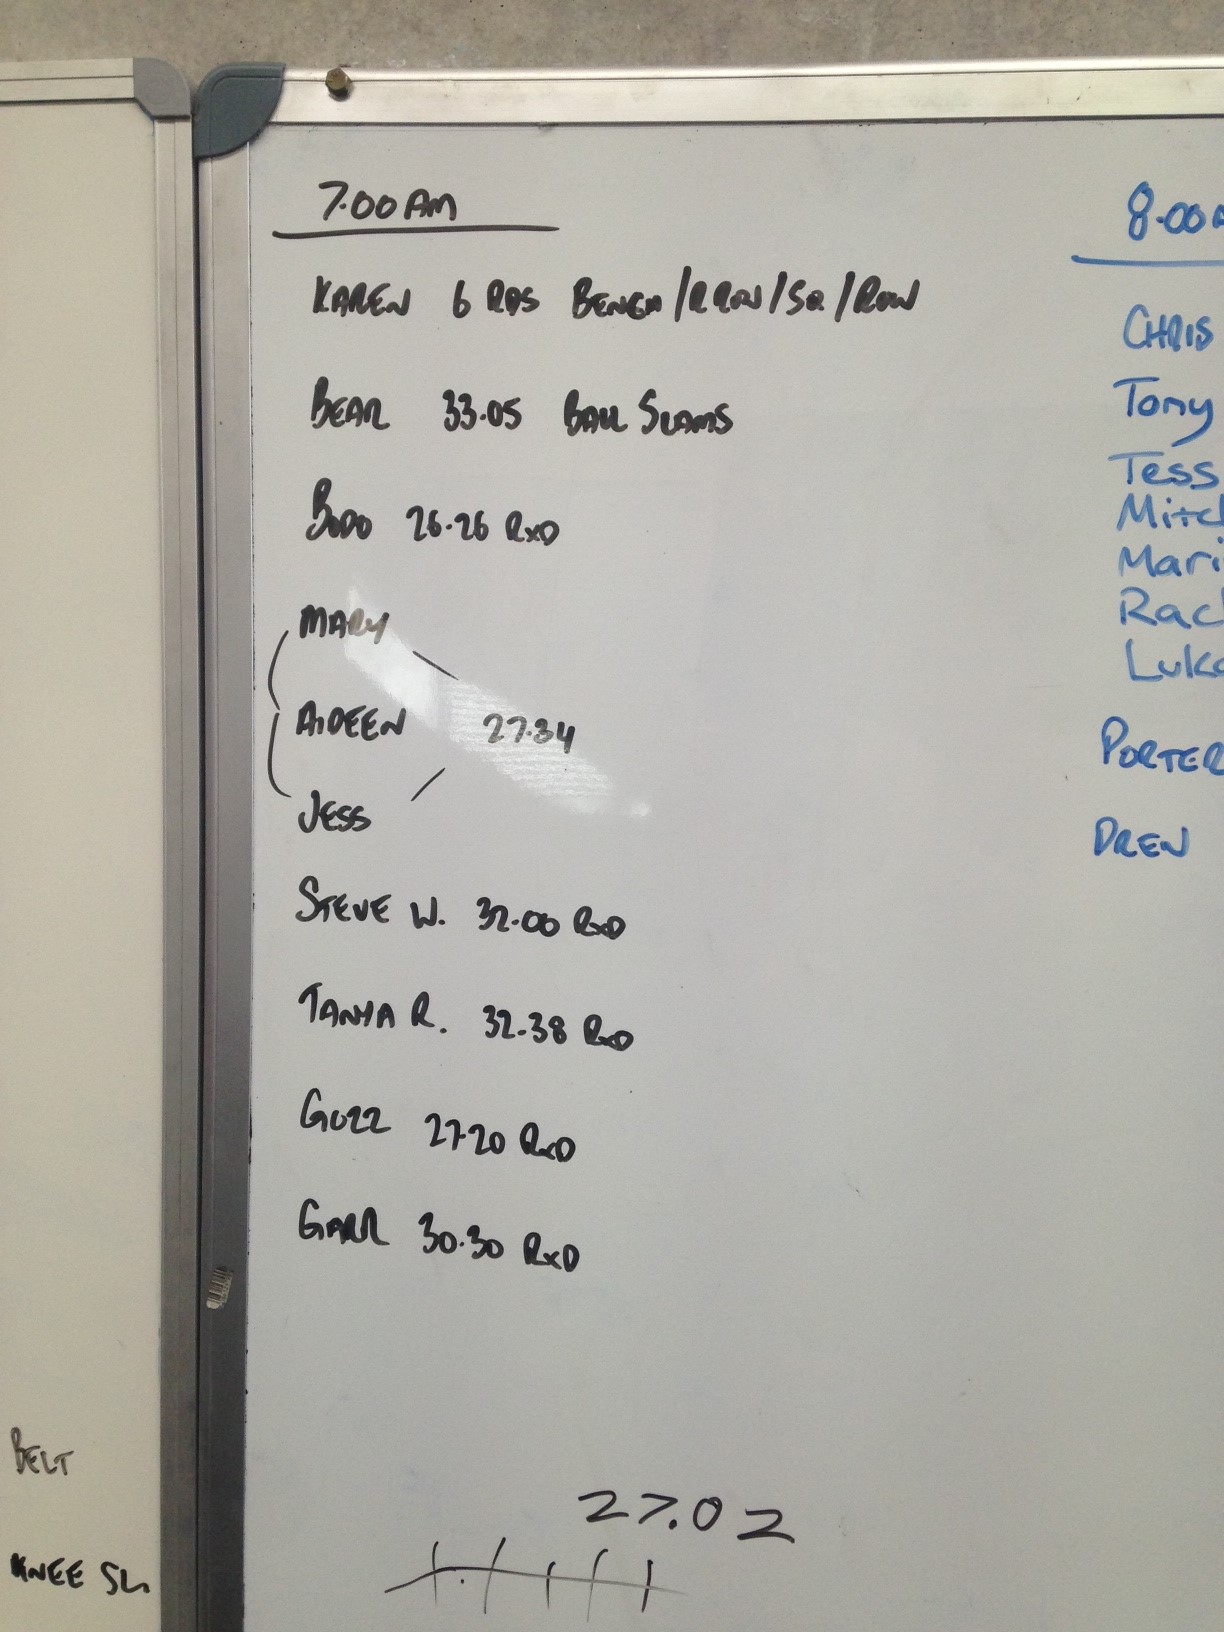 7.00 AM
KAREN 6 RDS BENCH/RROW/SQ/ROW
BEAR 33.05 BALL SLAMS
BODO 26.26 RXD
MARY
AIDEEN 27.34
JESS
STEVE W. 32.00 RXD
TANYA R. 32.38 RXD
GUZZ 27.20 RXD
GARR 30.30 RXD
27.02
8.00
CHRIS
Tony
Tess
Mitc
Mari
Rac
Luk
PORTER
DREN
BELT
KNEE SL